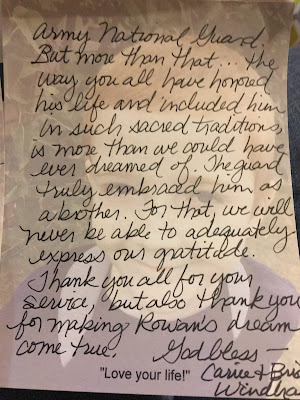 Army National Guard.
But more than that... the
way you all have honored
his life and included him
in such sacred traditions,
is more than we could have
ever dreamed of. The guard
truly embraced him as
a brother. For that, we will
never be able to adequately
express our gratitude.
Thank you all for your
service, but also thank you
for making Rowan's dream
come true. God bless –
"Love your life!" Carrie &